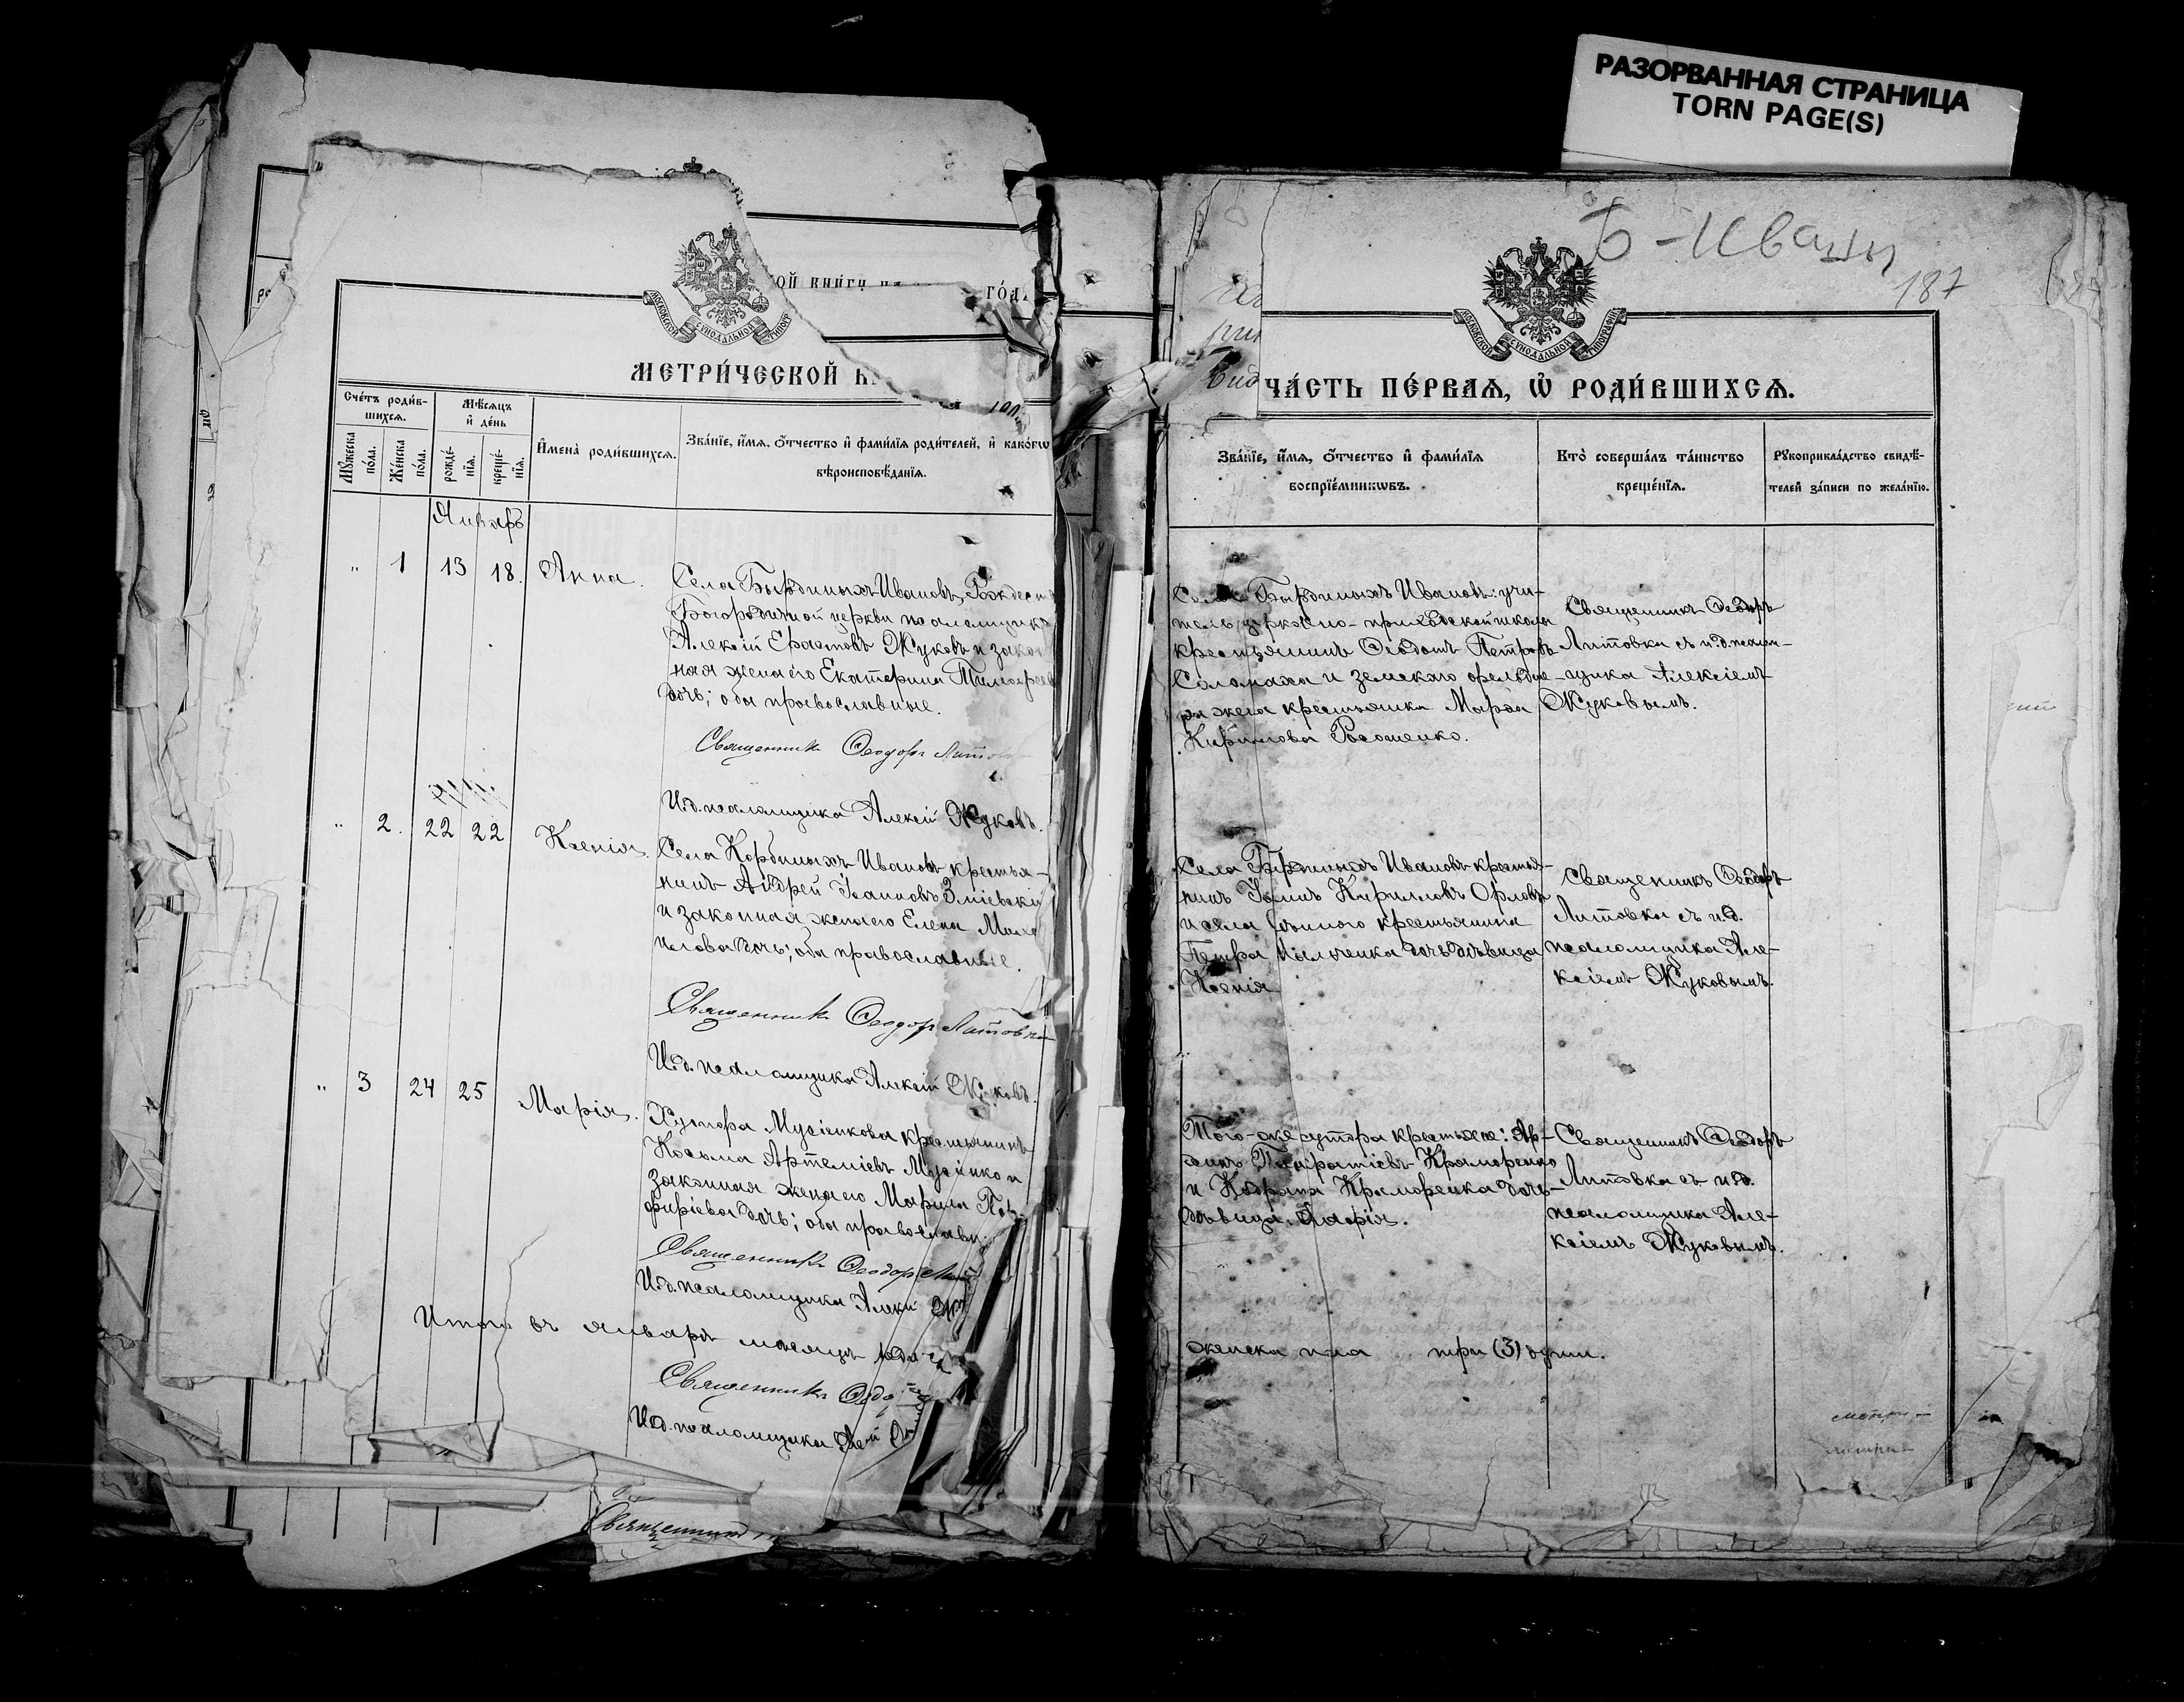 РАЗОРВАННАЯ СТРАНИЦА
TORN PAGE(S)
Б-Иваны
187
МОСКОВСКОЙ СѴНОДАЛЬНОЙ ТИПОГР
МОСКОВСКОЙ СѴНОДАЛЬНОЙ ТИПОГРАФІИ
ой книги
го́д
МЕТРИ́ЧЕСКОЙ
Сче́тъ роди́в-
шихсѧ.
Мѣ́сѧцъ
и҆ де́нь
Мꙋ́жеска
по́ла.
Же́нска
по́ла.
рожде́-
нїѧ.
креще́-
нїѧ.
И҆мена̀ роди́вшихсѧ.
Зва́нїе, и҆́мѧ, ѻ҆́тчество и҆ фами́лїѧ роди́телей, и҆ како́гѡ
вѣроисповѣ́данїѧ.
Январь
" 1 13 18. Анна.
Села Бырдиныхъ Ивановъ, Рождест
Богородичной церкви псаломщикъ
Алексій Ерастовъ Жуковъ и закон
ная жена его Екатерина Тимофеев
дочь; оба православные.
Священникъ Ѳеодоръ Литов
И.д. псаломщика Алексій Жуковъ.
" 2. 22 22 Ксенія.
Села Ивановъ крестья-
нинъ Андрей Іоанновъ Зміевскій
и законная жена его Елена Миха
илова дочь; оба православные.
Священникъ Ѳеодоръ Литовка
И.д. псаломщика Алексій Жуковъ.
" 3 24 25 Марія.
Хутора Мусіенкова крестьянинъ
Косьма Артеміевъ Мусіенко и
законная жена его Марина Пор-
фиріева дочь; оба православн
Священникъ Ѳеодоръ Лит
И.д. псаломщика Алексій Жу
Итого въ январѣ мѣсяцѣ родил
Священникъ Ѳеодо
И.д. псаломщика
Священникъ
ЧА́СТЬ ПЕ́РВАѦ, Ѽ РОДИ́ВШИХСѦ.
Зва́нїе, и҆́мѧ, ѻ҆́тчество и҆ фами́лїѧ
воспрїе́мникѡвъ.
Кто̀ соверша́лъ та́инство
креще́нїѧ.
Рꙋкоприкла́дство свидѣ́-
телей за́писи по жела́нїю.
Села Бырдиныхъ Ивановъ: учи-
тель церковно-приходской школы
крестьянинъ Ѳеодотъ Петровъ
Соломаха и земскаго фельдше-
ра жена крестьянка Марѳа
Кириллова Росоленко.
Священникъ Ѳеодоръ
Литовка съ и.д. псалом-
щика Алексіемъ
Жуковымъ.
Села Бырдиныхъ Ивановъ крестья-
нинъ Кирилловъ Орловъ
и села крестьянина
Петра дочь дѣвица
Ксенія
Священникъ Ѳеодоръ
Литовка съ и.д.
псаломщика Але-
ксіемъ Жуковымъ.
Того-же хутора крестьяне: Ар-
Панкратіевъ Краморенко
и Кодрата Краморенка дочь-
дѣвица Марія.
Священникъ Ѳеодоръ
Литовка съ и.д.
псаломщика Але-
ксіемъ Жуковымъ.
женска пола три (3) души.